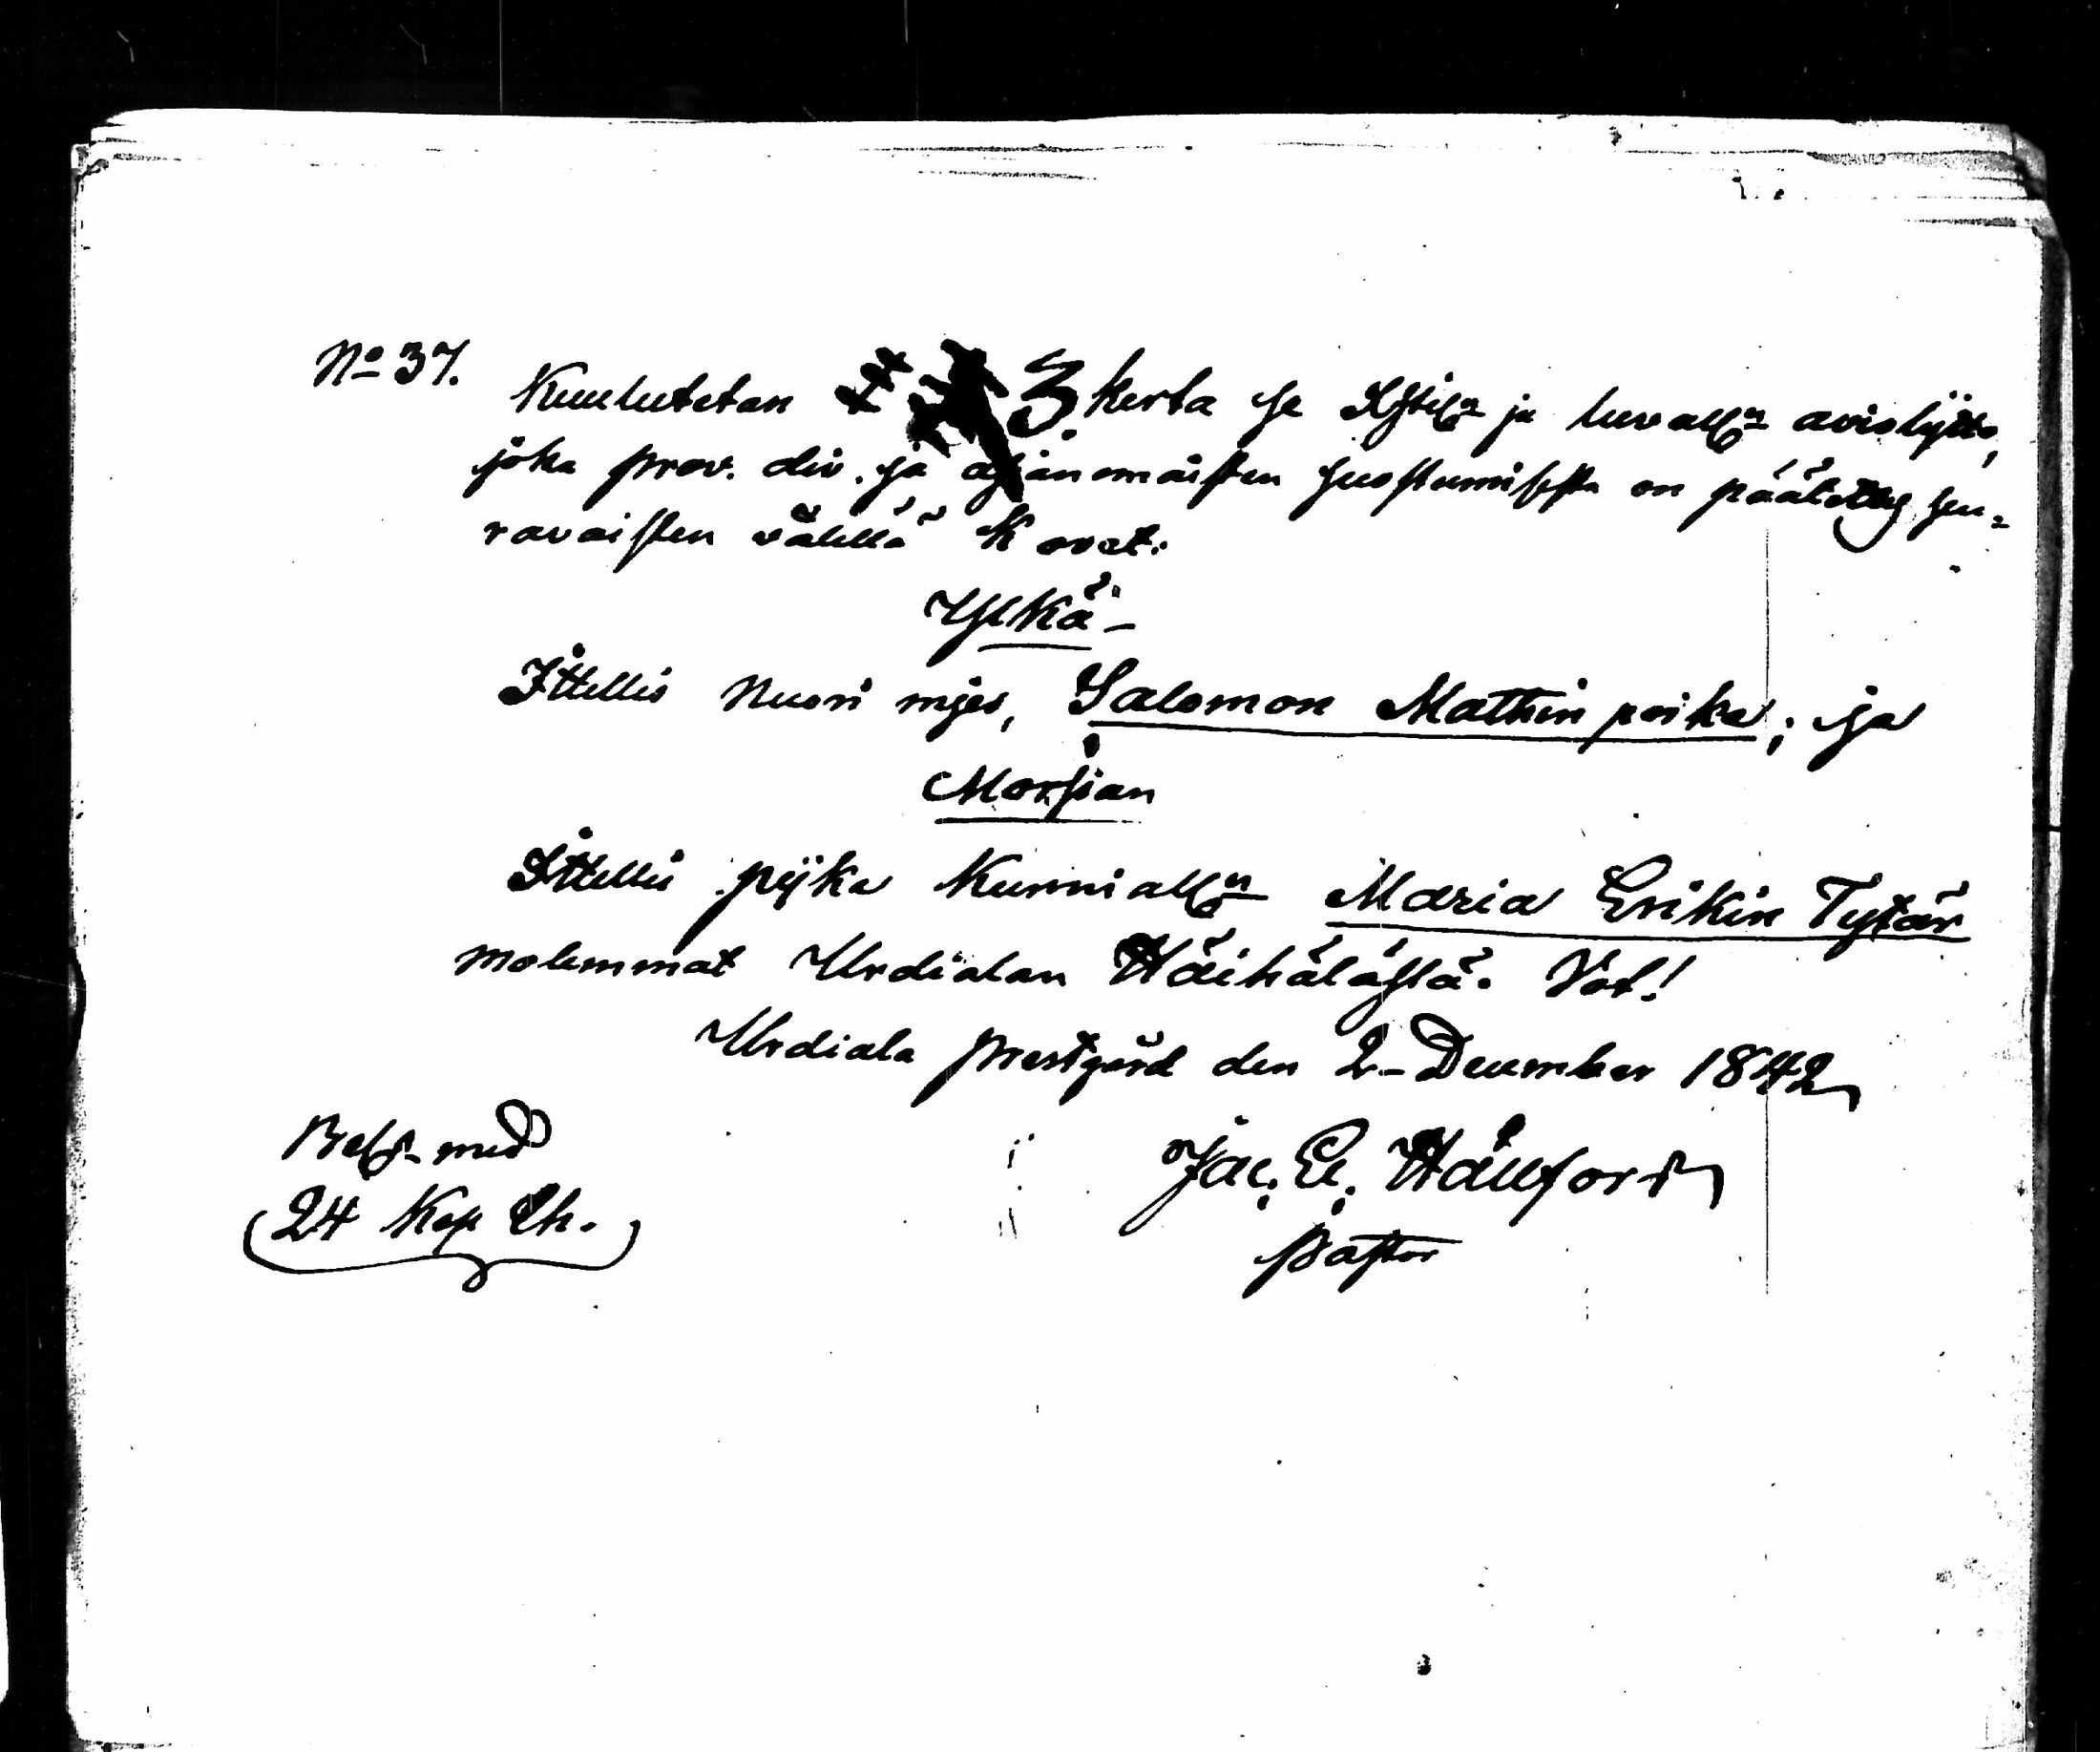 No 37. Kuulutetan 3 kerta se Xstilln ja luvalln avioliitto,
joka prov. div. ja asianomaisten suostumisesta on päätetty seu=
ravaisten välillä k ovat:
Ylkä -
Ittellis Nuori mjes, Salomon Mathin poika; ja
Morsian
Ittellis pijka kunnialln Maria Erikin Tytär
molemmat Urdialan Häihälästä. Vot!
Urdiala prestgård den 2 December 1842
Jac. Ed. Hällfors
Pastor
Bels. med
24 Kop Ch.